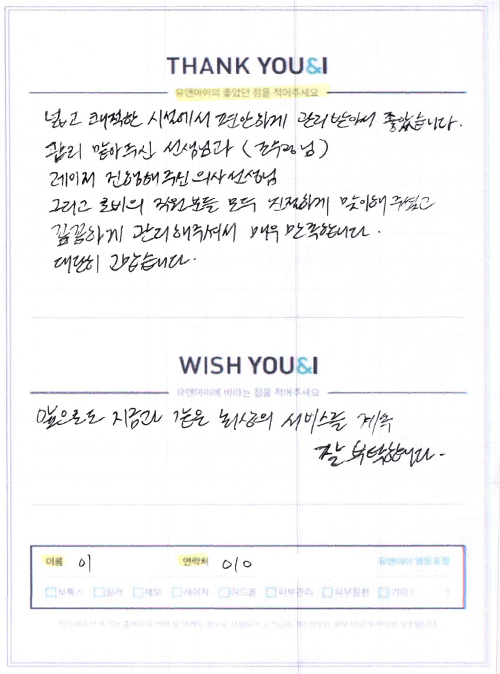 THANK YOU&I
유앤아이의 좋았던 점을 적어주세요
넓고 쾌적한 시설에서 편안하게 관리받아서 좋았습니다.
관리 맡아주신 선생님과 (조수정님)
레이저 진행해주신 의사선생님
그리고 로비의 직원분들 모두 친절하게 맞이해주셨고
꼼꼼하게 관리해주셔서 매우 만족합니다.
대단히 고맙습니다.
WISH YOU&I
유앤아이에 바라는 점을 적어주세요
앞으로도 지금과 같은 최상의 서비스를 계속
잘 부탁합니다.
이름 이 연락처 010 유앤아이 클리닉
보톡스 필러 제모 레이저 여드름 피부관리 피부질환 기타 ( )